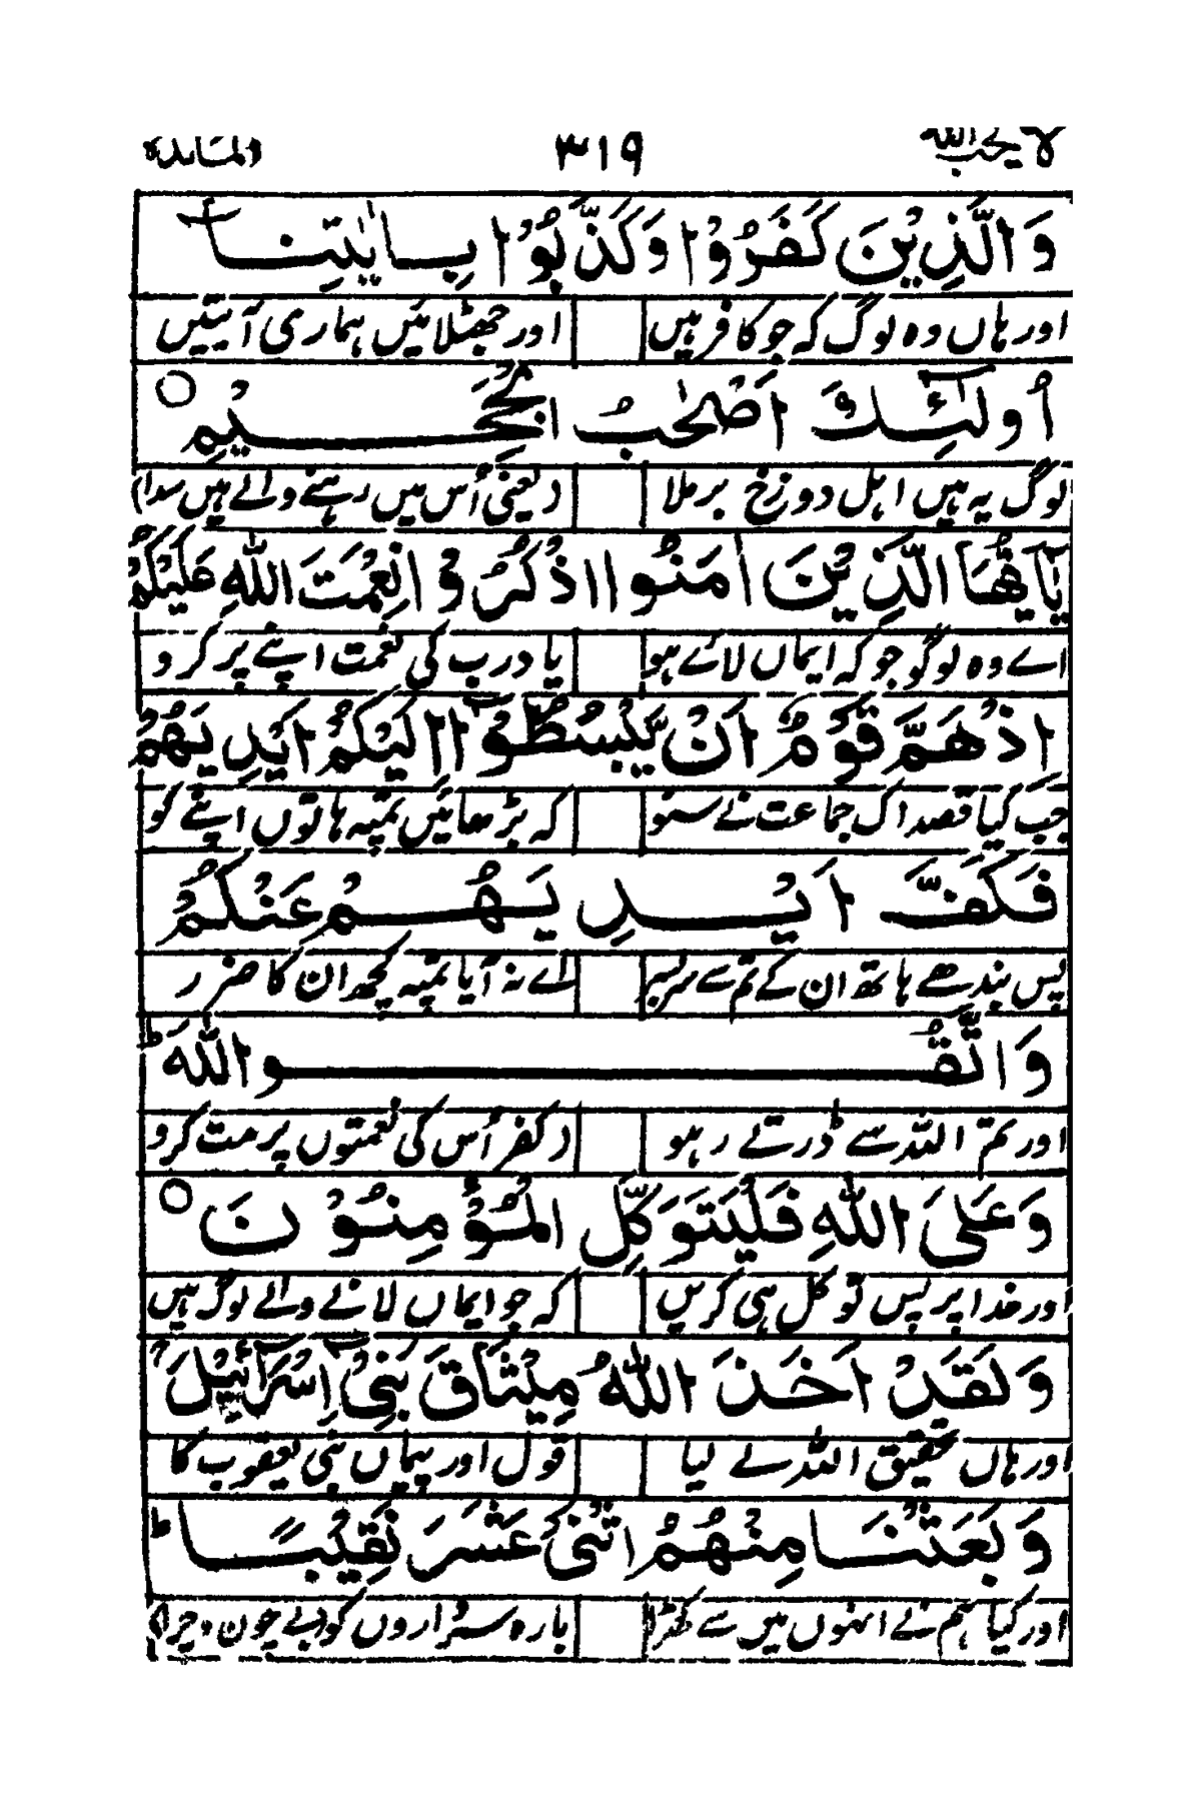 لا یحب اللہ ۳۱۹ المائدہ
وَالَّذِیْنَ کَفَرُوْا وَکَذَّبُوْا بِاٰیٰتِنَا
اور ہاں وہ لوگ کہ جو کافر ہیں اور جھٹلائیں ہماری آیتیں
اُولٰٓئِکَ اَصْحٰبُ الْجَحِیْمِ ○
لوگ یہ ہیں اہل دوزخ برملا (یعنی اُس میں رہنے والے ہیں سدا)
یٰٓاَیُّهَا الَّذِیْنَ اٰمَنُوا اذْکُرُوْا نِعْمَتَ اللّٰهِ عَلَیْکُمْ
اے وہ لوگو جو کہ ایماں لائے ہو یاد رب کی نعمت اپنے پر کرو
اِذْ هَمَّ قَوْمٌ اَنْ یَّبْسُطُوْۤا اِلَیْکُمْ اَیْدِیَهُمْ
جب کیا قصد اک جماعت نے سنو کہ بڑھائیں تمپہ ہاتوں اپنے کو
فَکَفَّ اَیْدِیَهُمْ عَنْکُمْ
پس بندھے ہاتھ ان کے تم سے سربسر اے نہ آیا تمپہ کچھ ان کا ضرر
وَاتَّقُوا اللّٰهَ ؕ
اور تم اللہ سے ڈرتے رہو (کفر اُس کی نعمتوں پر مت کرو
وَعَلَی اللّٰهِ فَلْیَتَوَکَّلِ الْمُؤْمِنُوْنَ ○
اور خدا پر پس توکل ہی کریں کہ جو ایماں لانے والے لوگ ہیں
وَلَقَدْ اَخَذَ اللّٰهُ مِیْثَاقَ بَنِیْۤ اِسْرَآئِیْلَ ۚ
اور ہاں تحقیق اللہ نے لیا قول اور پیماں بنی یعقوب کا
وَبَعَثْنَا مِنْهُمُ اثْنَیْ عَشَرَ نَقِیْبًا ؕ
اور کیا ہم نے انہوں میں سے کھڑا بارہ سرداروں کو بے چون و چرا